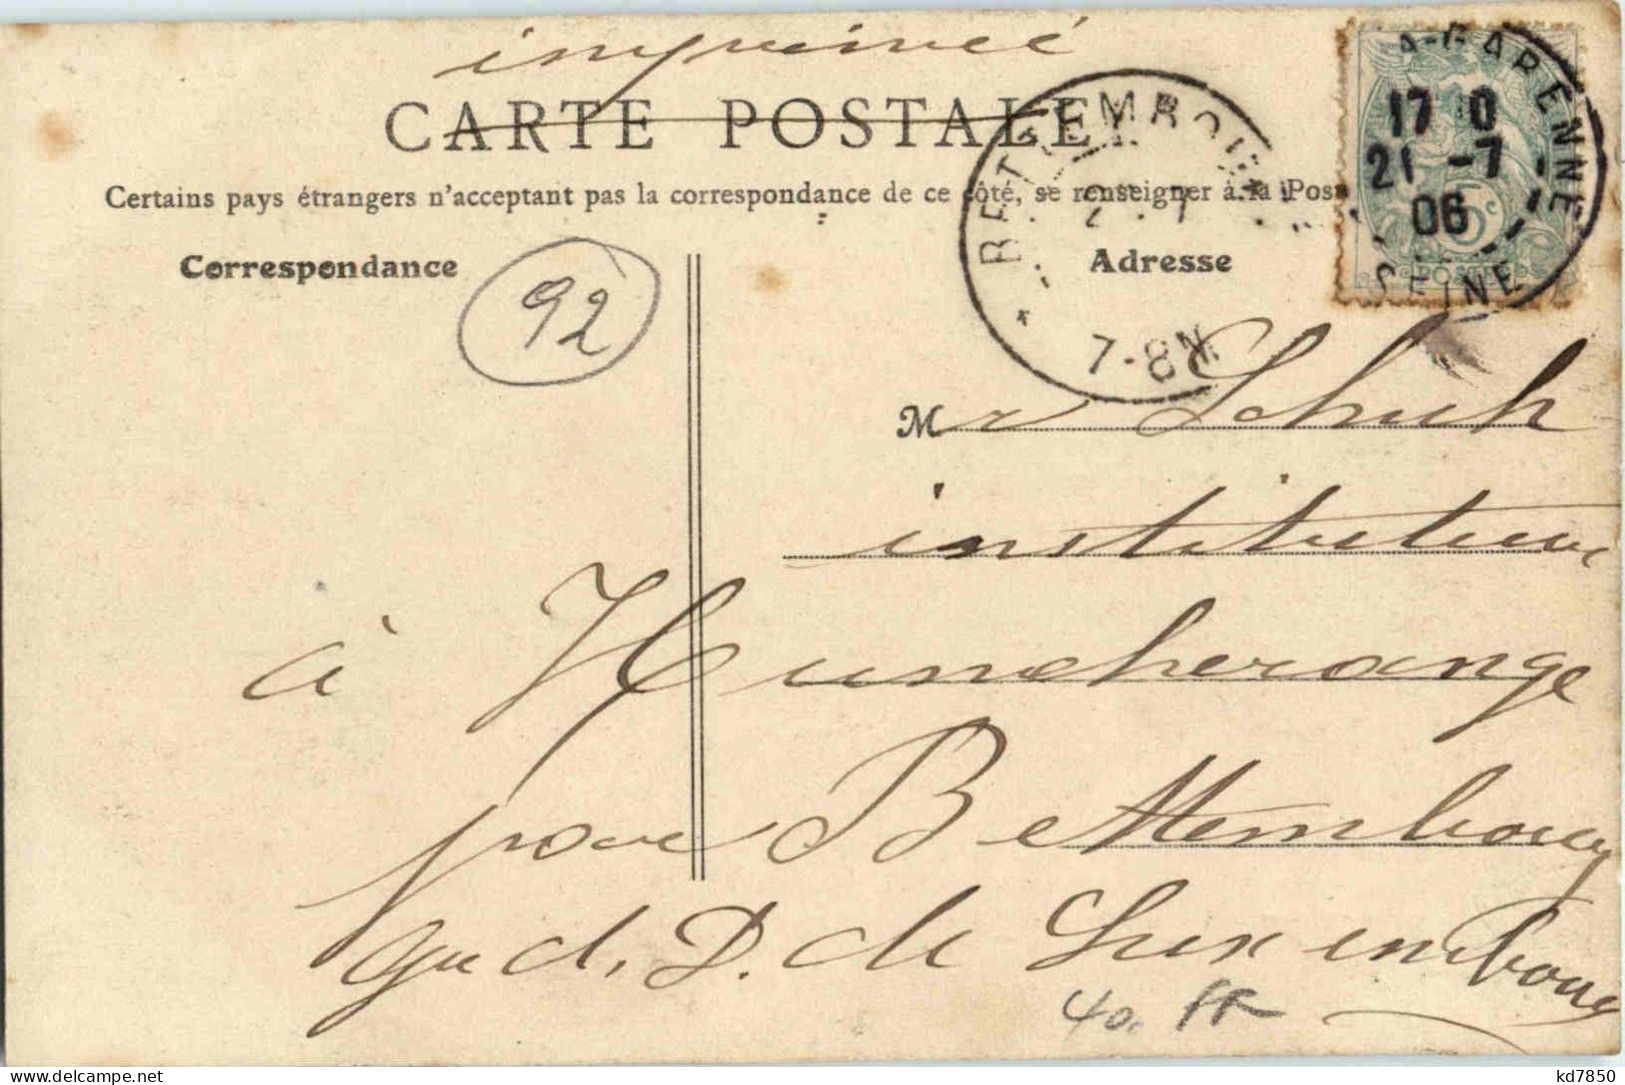 imprimée
CARTE POSTALE
Certains pays étrangers n'acceptant pas la correspondance de ce côté, se renseigner à la Pos
Correspondance
Adresse
92
BETTEMBOURG
7-8N
A-GARENNE
17 10
21 -7
06
SEINE
5c
POSTES
Mr Schuh
instituteur
à Huncherange
pour Bettembourg
Gd. D. de Luxembourg
40. FF
delcampe.net
kd7850